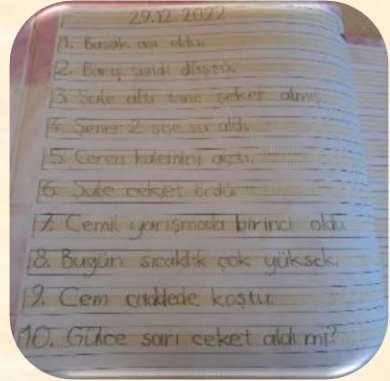 29.12.2022
1. Başak aşı oldu.
2. Barış şimdi düştü.
3. Şule altı tane şeker almış.
4. Şener 2 şişe su aldı.
5. Ceren kalemini açtı.
6. Şule ceket ördü.
7. Cemil yarışmada birinci oldu.
8. Bugün sıcaklık çok yüksek.
9. Cem caddede koştu.
10. Gülce sarı ceket aldı mı?